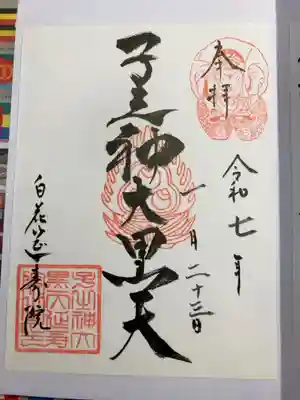 奉拝
令和七年
一月二十三日
子之神大黒天
白花山延寿院